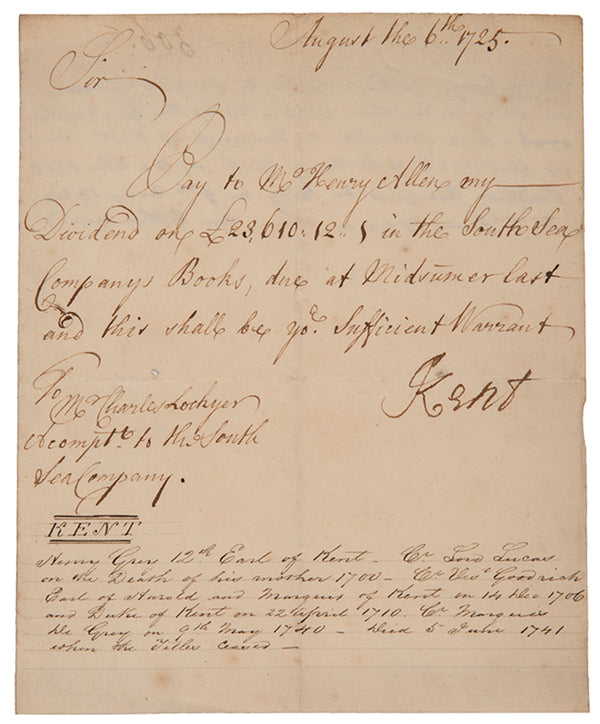 August the 6th. 1725.
Sir
Pay to Mr Henry Allen my
Dividend on £23,610:12:1 in the South Sea
Companys Books, due at Midsumer last
and this shall be yor. Sufficient Warrant
Kent
To Mr Charles Lockyer
Accomptt. to the South
Sea Company.
KENT
Henry Grey 12th Earl of Kent - Cr. Lord Lucas
on the Death of his mother 1700 - Cr. Visct Goodrich
Earl of Harold and Marquis of Kent on 14 Dec 1706
and Duke of Kent on 22 April 1710. Cr. Marquis
De Grey on 9th May 1740 - Died 5 June 1741
when the Titles ceased -